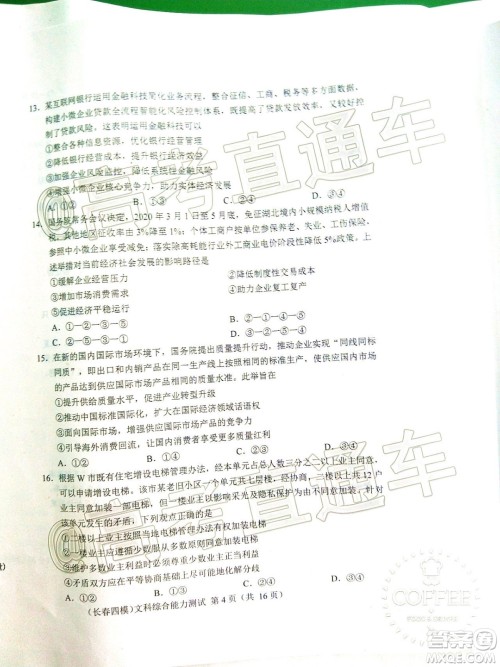 13. 某互联网银行运用金融科技简化业务流程，整合征信、工商、税务等多方面数据，
构建小微企业贷款全流程智能化风险控制体系，既提高了贷款发放效率，又较好控
制了贷款风险，这表明运用金融科技可以
①整合各种信息资源，优化银行经营管理
②降低银行经营成本，提升银行经济效益
③加强金融监管，有效防范系统金融风险
④增强小微企业核心竞争力，助力实体经济发展
A. ①② B. ①③ C. ②④ D. ③④
14. 国务院常务会议决定，2020 年 3 月 1 日至 5 月底，免征湖北境内小规模纳税人增值
税，其他地区征收率由 3%降至 1%；免征中小微企业养老、失业、工伤保险，
参照中小微企业享受减免；落实除高耗能行业外工商业电价阶段性降低 5%政策。上
述举措对当前经济社会发展的影响路径是
①缓解企业经营压力 ②降低制度性交易成本
③增加市场消费需求 ④助力企业复工复产
⑤促进经济平稳运行
A. ①—③—⑤ B. ②—①—⑤
C. ①—④—⑤ D. ②—④—③
15. 在新的国内国际市场环境下，国务院提出质量提升行动，在部分领域实施“同线同标
同质”，即出口和内销产品在同一生产线上按照相同的标准生产，使供应国内国际市场
的产品达到相同的质量水准。此举旨在
①提升供给质量水平，促进产业转型升级
②推动中国标准国际化，扩大在国际经济领域话语权
③面向国际国内市场，增强市场产品的竞争力
④引导海外消费回流，让国内消费者享受更多市场红利
A. ①② B. ①④ C. ②③ D. ③④
16. 根据 W 市既有住宅增设电梯管理办法，经本单元占总人数三分之二以上业主同意，
可以申请增设电梯。该市某老旧小区一个单元共七层楼，一楼以上业主共 12 户
业主同意加装一部电梯，一楼业主以影响采光及隐私保护为由不同意加装电梯，
该单元发生了矛盾。下列对化解此矛盾认识正确的是
①二楼以上业主，可依据增设电梯管理办法自行加装电梯
②一楼业主应遵循少数服从多数原则同意加装电梯
③既要维护多数业主利益时必须尊重少数业主正当利益
④矛盾双方应在平等协商基础上尽可能地化解分歧
A. ①② B. ①③ C. ②④ D. ③④
(长春四模) 文科综合能力测试 第 4 页 (共 16 页)
@高考直通车
@高考直通车
COFFEE
答案圈